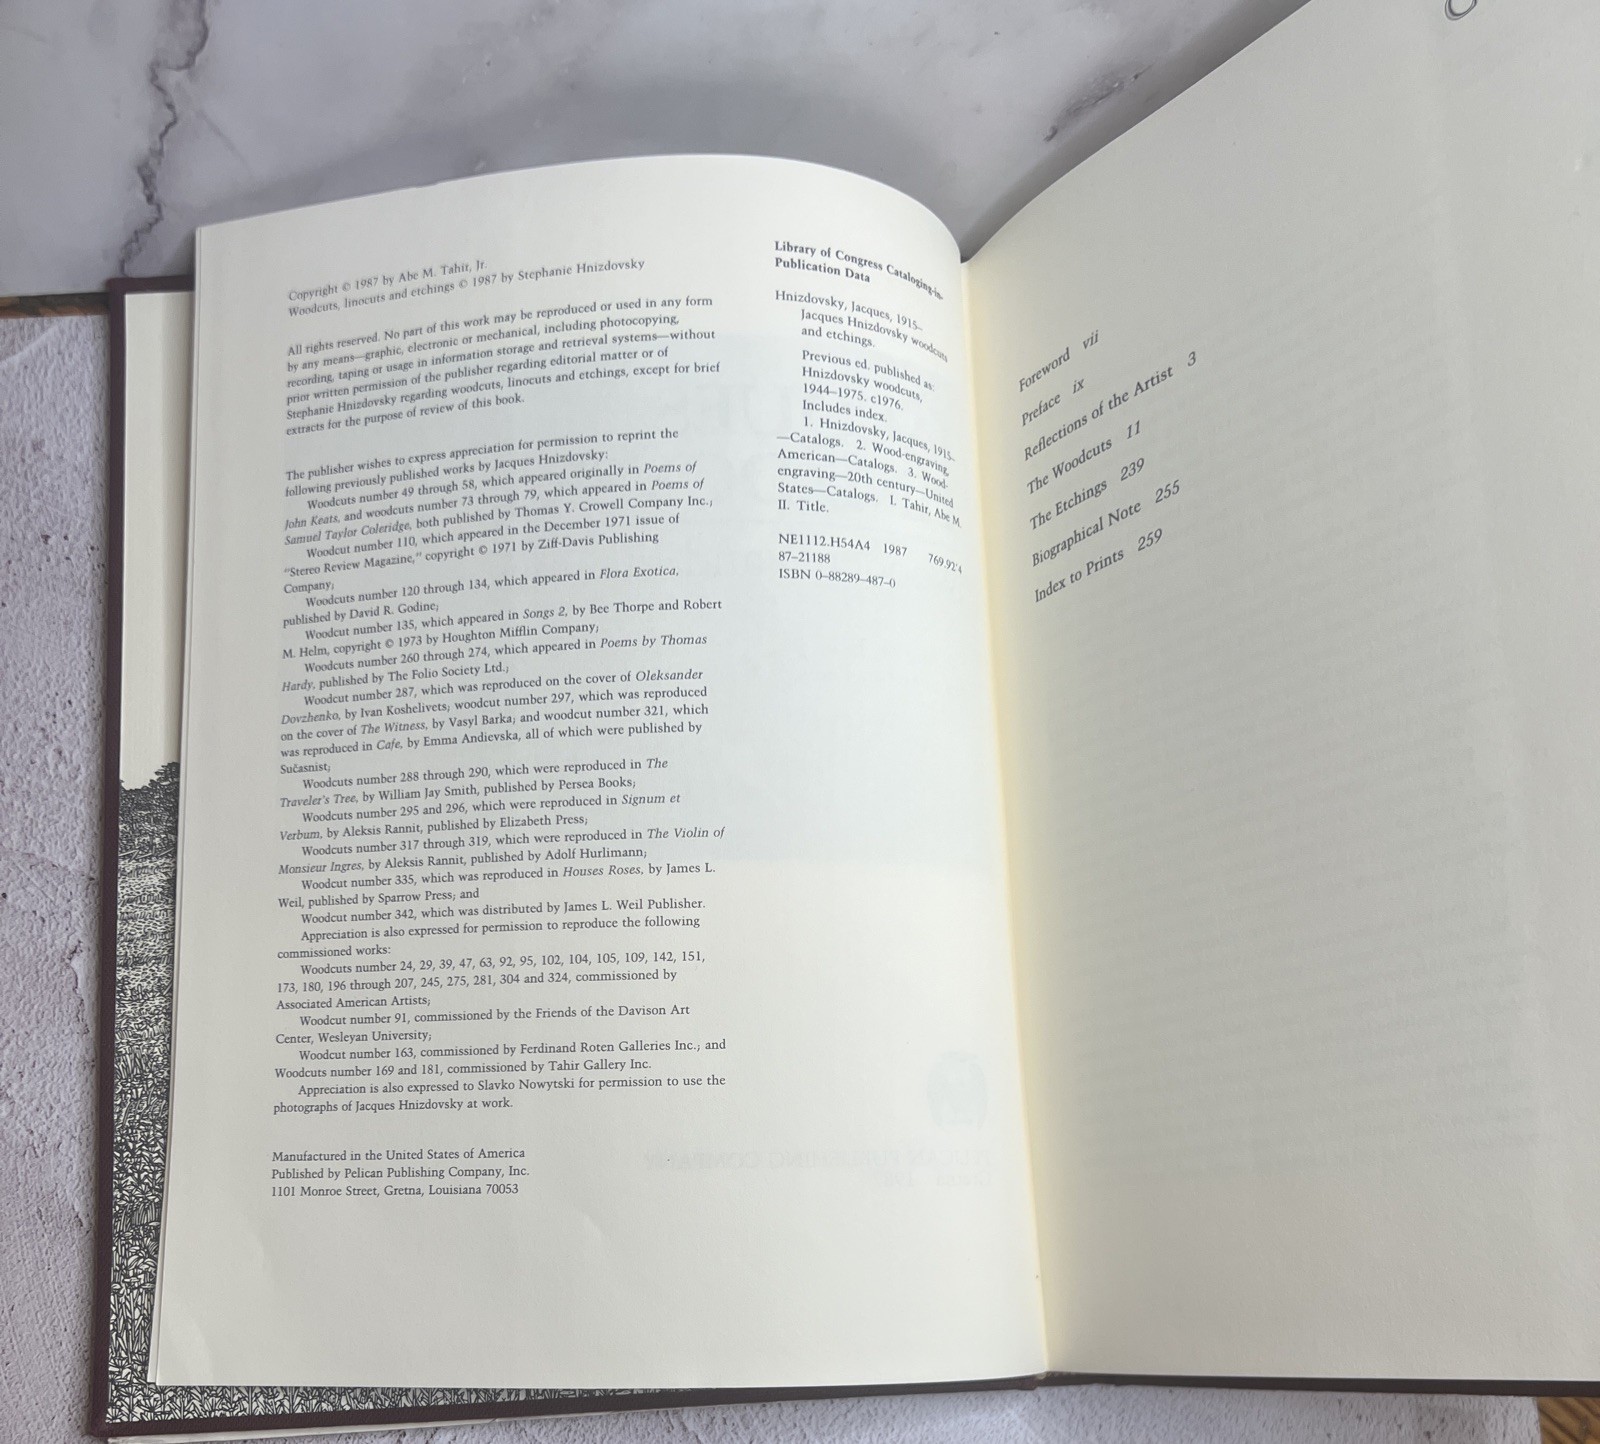 Copyright © 1987 by Abe M. Tahir, Jr.
Woodcuts, linocuts and etchings © 1987 by Stephanie Hnizdovsky
All rights reserved. No part of this work may be reproduced or used in any form
by any means—graphic, electronic or mechanical, including photocopying,
recording, taping or usage in information storage and retrieval systems—without
prior written permission of the publisher regarding editorial matter or of
Stephanie Hnizdovsky regarding woodcuts, linocuts and etchings, except for brief
extracts for the purpose of review of this book.
The publisher wishes to express appreciation for permission to reprint the
following previously published works by Jacques Hnizdovsky:
Woodcuts number 49 through 58, which appeared originally in Poems of
John Keats, and woodcuts number 73 through 79, which appeared in Poems of
Samuel Taylor Coleridge, both published by Thomas Y. Crowell Company Inc.;
Woodcut number 110, which appeared in the December 1971 issue of
"Stereo Review Magazine," copyright © 1971 by Ziff-Davis Publishing
Company;
Woodcuts number 120 through 134, which appeared in Flora Exotica,
published by David R. Godine;
Woodcut number 135, which appeared in Songs 2, by Bee Thorpe and Robert
M. Helm, copyright © 1973 by Houghton Mifflin Company;
Woodcuts number 260 through 274, which appeared in Poems by Thomas
Hardy, published by The Folio Society Ltd.;
Woodcut number 287, which was reproduced on the cover of Oleksander
Dovzhenko, by Ivan Koshelivets; woodcut number 297, which was reproduced
on the cover of The Witness, by Vasyl Barka; and woodcut number 321, which
was reproduced in Cafe, by Emma Andievska, all of which were published by
Sučasnist;
Woodcuts number 288 through 290, which were reproduced in The
Traveler's Tree, by William Jay Smith, published by Persea Books;
Woodcuts number 295 and 296, which were reproduced in Signum et
Verbum, by Aleksis Rannit, published by Elizabeth Press;
Woodcuts number 317 through 319, which were reproduced in The Violin of
Monsieur Ingres, by Aleksis Rannit, published by Adolf Hurlimann;
Woodcut number 335, which was reproduced in Houses Roses, by James L.
Weil, published by Sparrow Press; and
Woodcut number 342, which was distributed by James L. Weil Publisher.
Appreciation is also expressed for permission to reproduce the following
commissioned works:
Woodcuts number 24, 29, 39, 47, 63, 92, 95, 102, 104, 105, 109, 142, 151,
173, 180, 196 through 207, 245, 275, 281, 304 and 324, commissioned by
Associated American Artists;
Woodcut number 91, commissioned by the Friends of the Davison Art
Center, Wesleyan University;
Woodcut number 163, commissioned by Ferdinand Roten Galleries Inc.; and
Woodcuts number 169 and 181, commissioned by Tahir Gallery Inc.
Appreciation is also expressed to Slavko Nowytski for permission to use the
photographs of Jacques Hnizdovsky at work.
Manufactured in the United States of America
Published by Pelican Publishing Company, Inc.
1101 Monroe Street, Gretna, Louisiana 70053
Library of Congress Cataloging-in-
Publication Data
Hnizdovsky, Jacques, 1915–
Jacques Hnizdovsky woodcuts
and etchings.
Previous ed. published as:
Hnizdovsky woodcuts,
1944–1975. c1976.
Includes index.
1. Hnizdovsky, Jacques, 1915–
—Catalogs. 2. Wood-engraving,
American—Catalogs. 3. Wood-
engraving—20th century—United
States—Catalogs. I. Tahir, Abe M.
II. Title.
NE1112.H54A4 1987 769.92'4
87–21188
ISBN 0–88289–487–0
Foreword vii
Preface ix
Reflections of the Artist 3
The Woodcuts 11
The Etchings 239
Biographical Note 255
Index to Prints 259